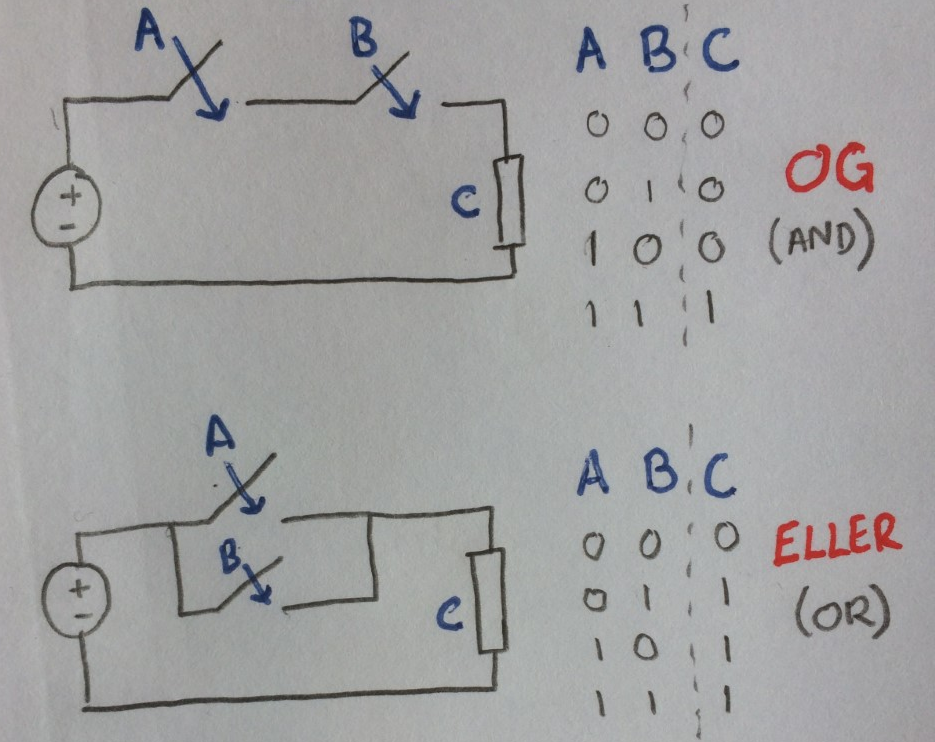 A B
+
-
C
A B C
0 0 0
0 1 0
1 0 0
1 1 1
OG
(AND)
A
B
+
-
C
A B C
0 0 0
0 1 1
1 0 1
1 1 1
ELLER
(OR)